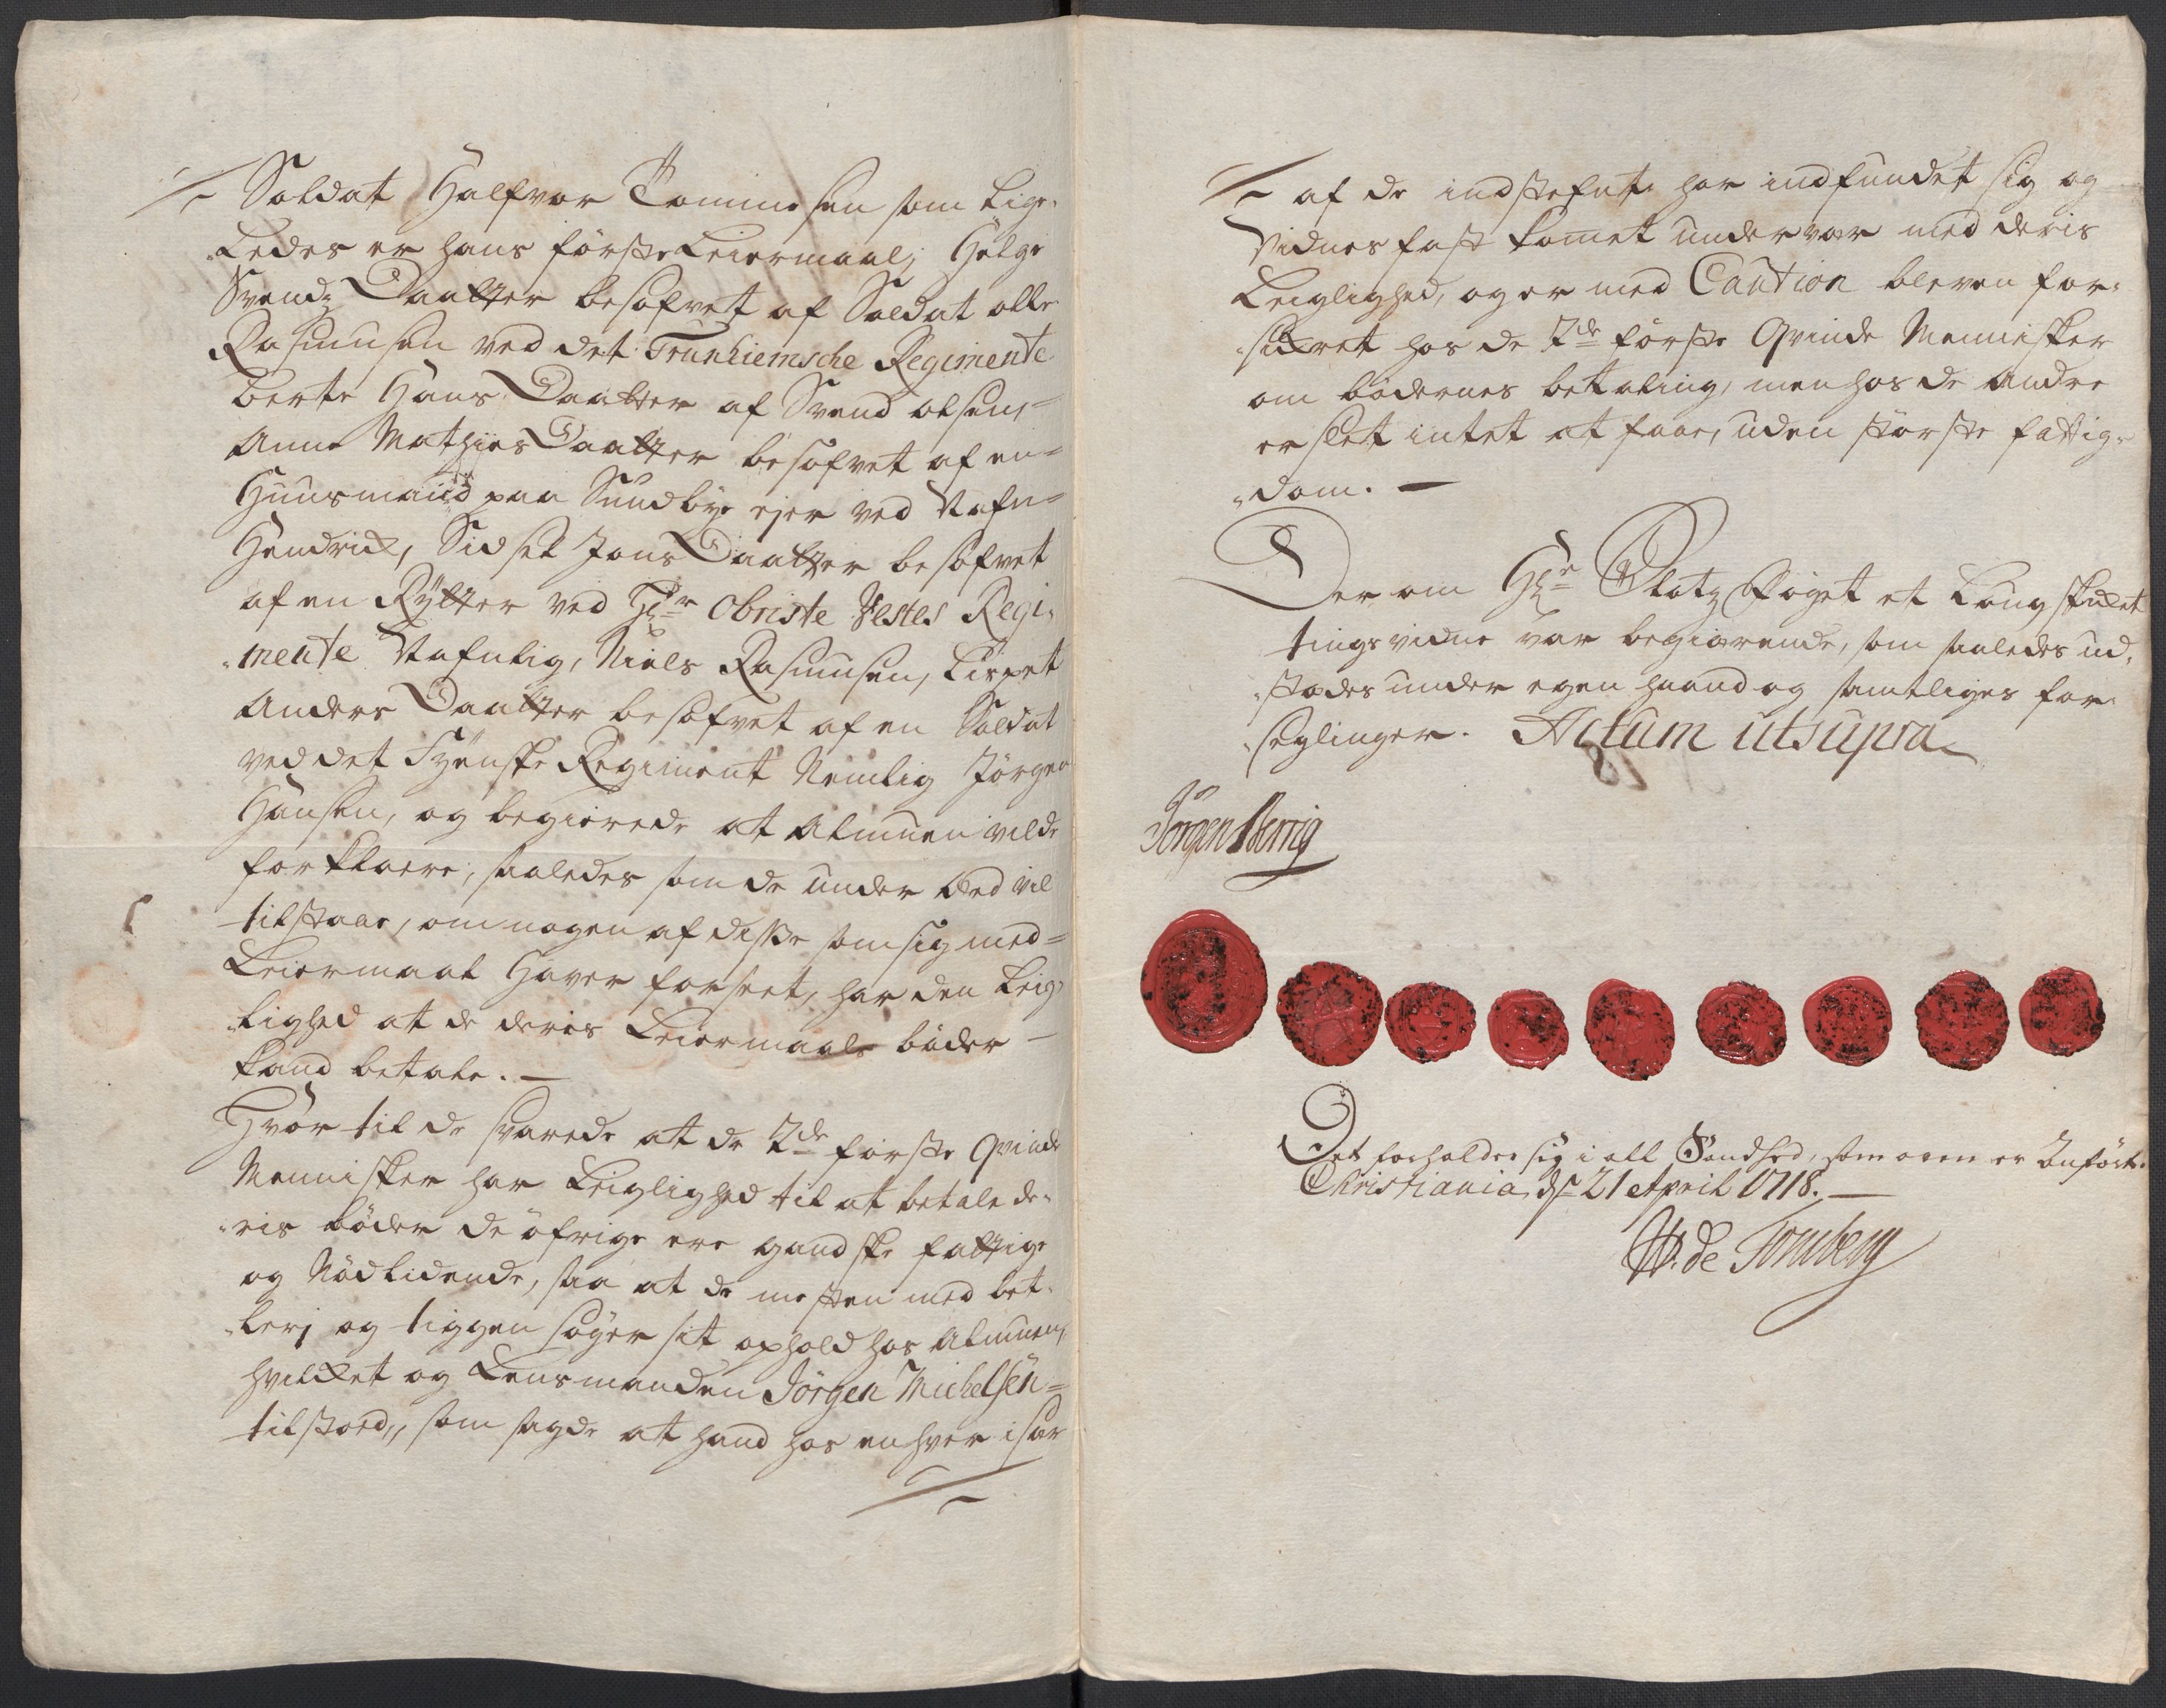 Soldat Halfvor Tommesen som Lige-
Ledes er hans förste Leiermaal; Helge
Svends Daatter besofvet af Soldat olle
Rasmusen ved det Trunhiemsche Regimente
berte Hans Daatter af Svend olsen,
Anne Mathies Daatter besofvet af en
Huusmand paa Sundbye ejer ved Nafn
Hendrick, Sidsel Jons Daatter besofvet
af en Rÿtter ved Hr Obriste Vestes Regi-
mente Nafnlig, Niels Rasmusen, Lispet
Anders Daatter besofvet af en Soldat
ved det Fyenske Regiment Nemlig Jörgen
Hansen, og begierede at Almuen vilde
forklare, saaledes som de under Eed vil
tilstaae, om nogen af disse som sig med
Leiermaal Haver forseet, har den Leig-
lighed at de deris Leiermaals böder
kand betale. —
Hvortil de svarede at de 2de förste Qvinde
Mennisker har Leiglighed til at betale de-
ris böder de öfrige ere gandske fattige
og Nödlidende, saa at de mesten med bet-
lerj og tiggen söger sit ophold hos Almuen,
hvilcket og Lensmanden Jörgen Michelsen
tilstoed, som sagde at hand hos enhver især
af de indstefnte har indfundet sig og
Vidnesfast komet underveer med deris
Leiglighed, og er med Caution bleven for-
sickret hos de 2de förste Qvinde Mennisker
om bödernes betaling, men hos de andre
er slet intet at faae, uden störste fattig-
dom. —
Der om Hr Plotz Foget et Laugskicket
tingsvidne var begierende, som saaledes ud-
stædes under egen haand og samtliges for-
seglinger. Actum ut supra
Jörgen
Det forholder sig i all Sandhed, som oven er Anfört.
Christiania ds 21 April 1718. —
W. de Tonsberg